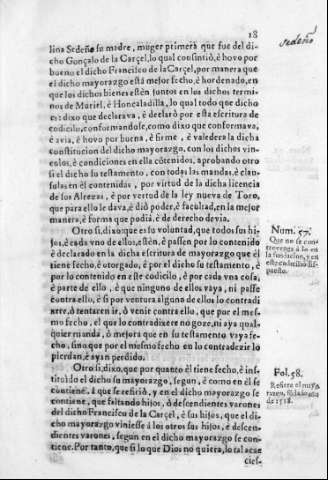 18
Sedeño
lina Sedeño su madre, muger primera que fue del di-
cho Gonçalo de la Carçel, lo qual consintió, è hovo por
bueno el dicho Francisco de la Carçel, por manera que
el dicho mayorazgo está mejor fecho, è hordenado, en
que los dichos bienes estèn juntos en los dichos termi-
nos de Muriel, è Honcaladilla, lo qual todo que dicho
es: dixo que declarava, è declarò por esta escritura de
codicilo, conformandose, como dixo que conformava,
è avia, è hovo por buena, è firme, è valedera la dicha
constitucion del dicho mayorazgo, con los dichos vin-
culos, è condiciones en ella cõtenidos, aprobando otro
si el dicho su testamento, con todas las mandas, è clau-
sulas en èl contenidas, por virtud de la dicha licencia
de sus Altezas, è por vertud de la ley nueva de Toro,
que para ello le dava, è diò poder, è facultad, en la mejor
manera, è forma que podia, è de derecho devia.
Otro si, dixo: que es su voluntad, que todos sus hi-
jos, è cada vno de ellos, estèn, è passen por lo contenido
è declarado en la dicha escritura de mayorazgo que èl
tiene fecho, è otorgado, è por el dicho su testamento, è
por lo contenido en este codicilo, è por cada vna cosa,
è parte de ello, è que ninguno de ellos vaya, ni passe
contra ello, è si por ventura alguno de ellos lo contradi
xere, ò tentaren ir, ò venir contra ello, que por el mes-
mo fecho, el que lo contradixere no goze, ni aya qual-
quier manda, ò mejora que en su testamento vaya fe-
cho, sino que por el mesmo fecho en lo contradezir lo
pierdan, è ayan perdido.
Otro si, dixo, que por quanto èl tiene fecho, è ins-
tituìdo el dicho su mayorazgo, segun, è como en èl se
contiene, à que se refiriò, y en el dicho mayorazgo se
contiene, que faltando hijos, ò descendientes varones
del dicho Francisco de la Carçel, è sus hijos, que el di-
cho mayorazgo viniesse à los otros sus hijos, è descen-
dientes varones, segun en el dicho mayorazgo se con-
tiene. Por tanto, que si lo que Dios no quiera, lo tal acae
cies-
Num. 57.
Que no se con-
travenga à lo en
la fundacion, y en
este codicilo dis-
puesto.
Fol. 58.
Refiere el mayo-
razgo,
de 1518.